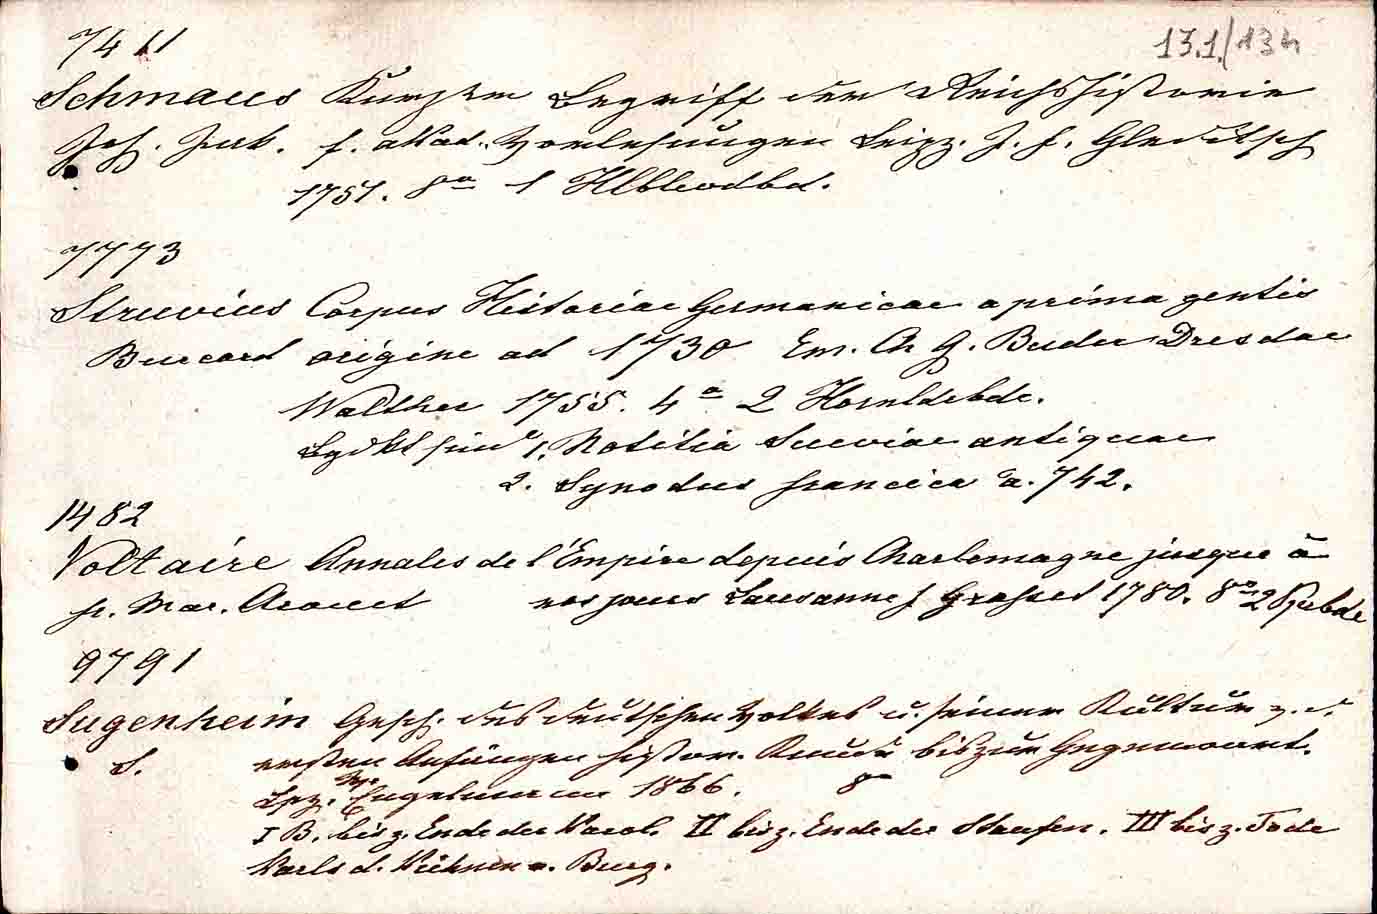 7411
13.1./134
Schmaus Kurzer Begriff der Reichshistorie
Joh. Jak. f. akad. Vorlesungen Leipz. J. F. Gleditsch
1751. 8° 1 Hlbledbd.
7773
Struvius Corpus Historiae Germanicae a prima gentis
Burcard origine ad 1730 Em. Ch G. Buder Dresdae
Walther 1755. 4° 2 Hornldrbde.
1. Notitia Sueviae antiquae
2. Synodus francica a. 742.
1482
Voltaire Annales de l'Empire depuis Charlemagne jusque à
fr. Mar. Arouet nos jours Lausanne f Grasset 1780. 8° 2
9791
Sugenheim Gesch. des deutschen Volkes u. seiner Kultur v. d.
S. ersten Anfängen histor. Kunde bis zur Gegenwart.
Lpz. W. Engelmann 1866. 8°
I B. bis z. Ende der Karol. II bis z. Ende der Staufen. III bis z. Tode
Karls d. Kühnen v. Burg.